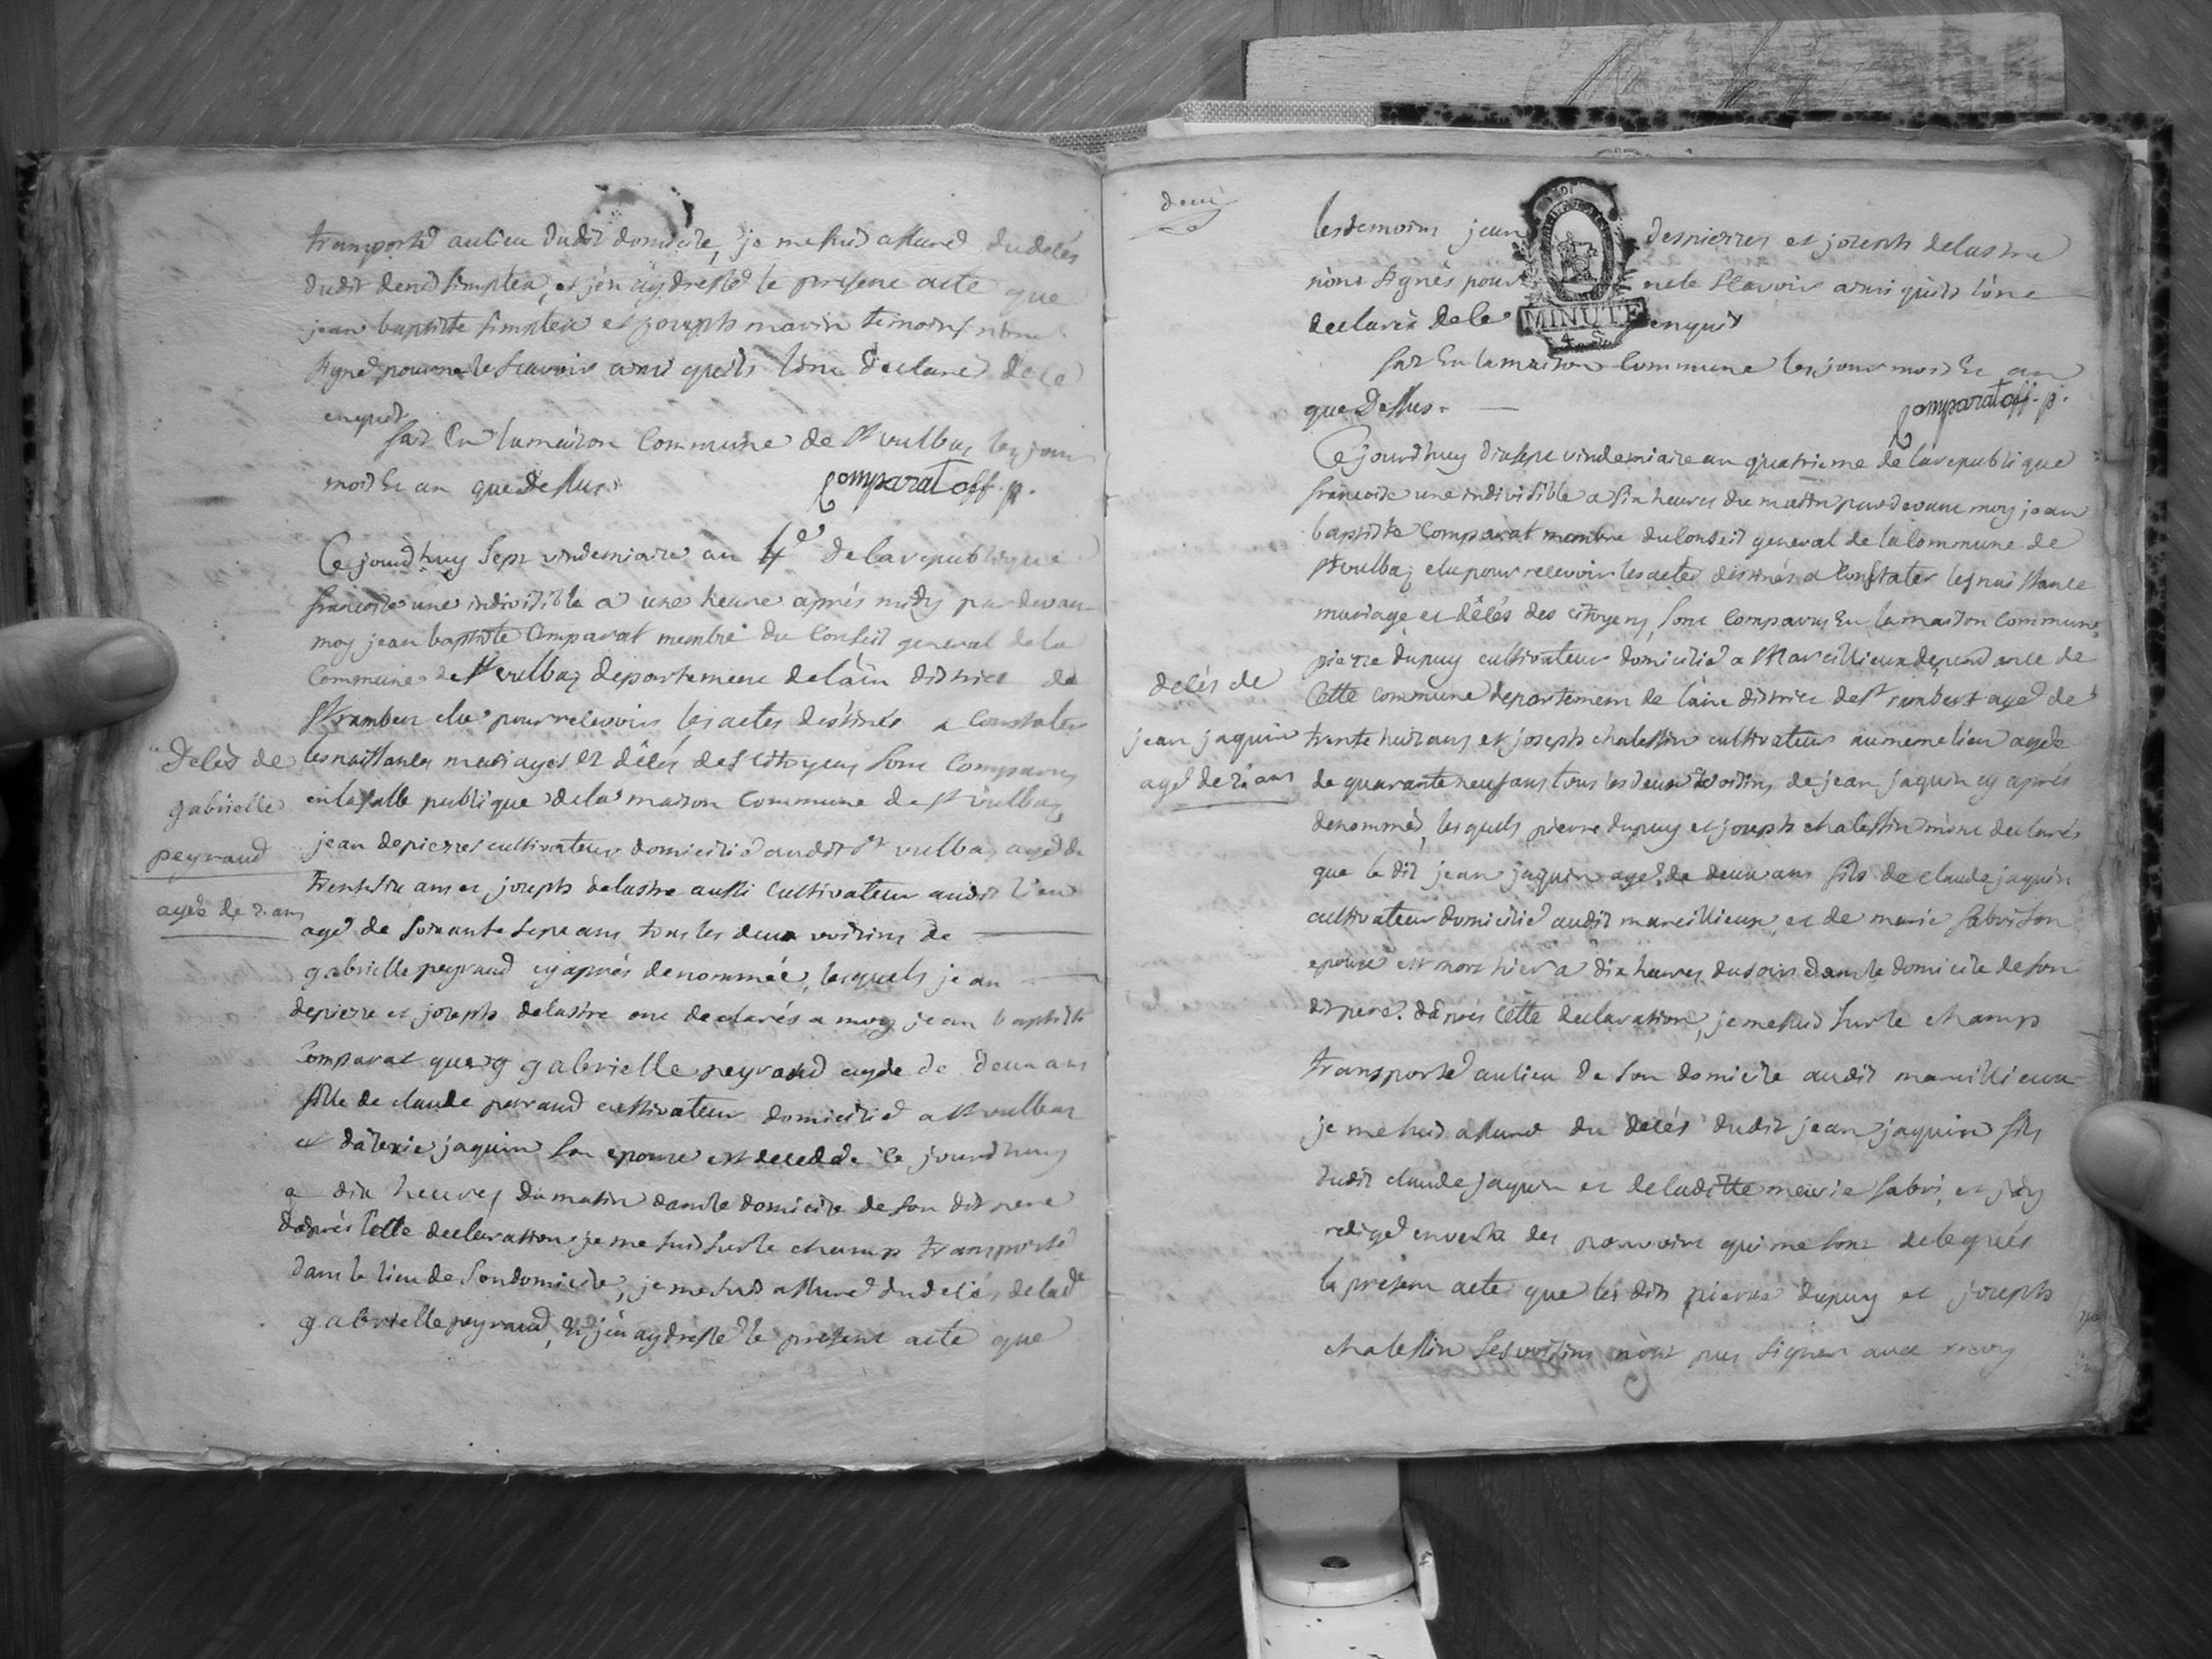 transporté au lieu dudit domicile, je me suis assuré du décés
dudit denis simplex, et j'en ay dressé le present acte que
jean baptiste simplex et joseph marin temoins n'ont
signé pour ne le scavoir ainsi quils l'ont declaré de ce
enquis
fait en la maison commune de st vulbas les jour
mois et an que dessus.
Comparat off. p.
Ce jourd'huy sept vindemiaire an 4e de la republique
francoise une indivisible a une heure aprés midy par devan
moy jean baptiste Comparat membre du Conseil general de la
Commune de st vulbaz departement de l'ain district de
st rambert elu pour recevoir les actes destinés a Constater
les naissances mariages et décés des citoyens sont Comparus
en la salle publique de la maison commune de st vulbaz
jean depierres cultivateur domicilié audit st vulbaz agé de
trente six ans et joseph delastre aussi cultivateur audit lieu
agé de soixante sept ans tous les deux voisins de
gabrielle peyraud cy aprés denommée, lesquels jean
depierre et joseph delastre ont declarés a moy jean baptiste
Comparat que g gabrielle peyraud agée de deux ans
fille de claude peyraud cultivateur domicilié a st vulbaz
et jaquin son epouse est decedée ce jourd'huy
a dix heures du matin dans le domicile de son dit pere
d'aprés cette declaration je me suis sur le champ transporté
dans le lieu de son domicile, je me suis assuré du décés de lade
gabrielle peyraud, et j'en ay dressé le present acte que
Décés de
gabrielle
peyraud
agée de 2. ans
deux
les temoins jean despierres et joseph delastre
n'ont signés pour ne le scavoir ainsi quils l'ont
declarés de ce enquis
MINUTE
4. S.
fait en la maison Commune les jour mois et an
que dessus.
Comparat off. p.
Ce jourd'huy dixsept vindemiaire an quatrieme de la republique
francoise une indivisible a six heures du matin par devant moy jean
baptiste Comparat membre du Conseil general de la Commune de
st vulbaz elu pour recevoir les actes destinés a Constater les naissance
mariage et décés des citoyens, sont Comparus en la maison Commune
pierre dupuy cultivateur domicilié a Marcillieux dependance de
Cette commune departement de l'ain district de st rambert agé de
trente huit ans et joseph chalessin cultivateur au meme lieu agée
de quarante neuf ans tous les deux voisins de jean jaquin cy aprés
denommé, lesquels pierre dupuy et joseph chalessin m'ont declarés
que le dit jean jaquin agé de deux ans fils de claude jaquin
cultivateur domicilié audit marcillieux et de marie fabri son
epouse est mort hier a dix heures du soir dans le domicile de son
dit pere. d'aprés cette declaration, je me suis sur le champ
transporté au lieu de son domicile audit marcillieux
je me suis assuré du décés dudit jean jaquin fils
dudit claude jaquin et de laditte marie fabri, et j'ay
redigé en vertu des pouvoirs qui me sont delegués
le present acte que les dits pierre dupuy et joseph
chalessin ses voisins n'ont pus signer avec moy
décés de
jean jaquin
agé de 2. ans